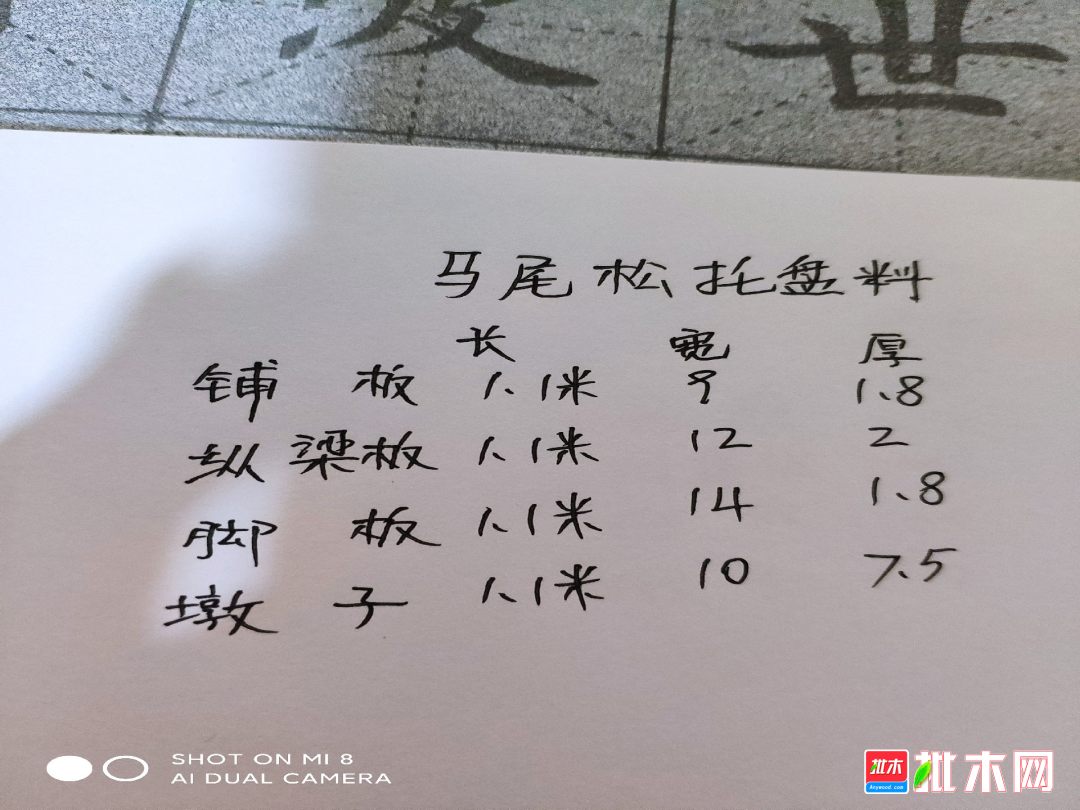 世
马尾松托盘料
长 宽 厚
铺板 1.1米 9 1.8
纵梁板 1.1米 12 2
脚板 1.1米 14 1.8
墩子 1.1米 10 7.5
SHOT ON MI 8
AI DUAL CAMERA
批木 批木网
Anywood.com